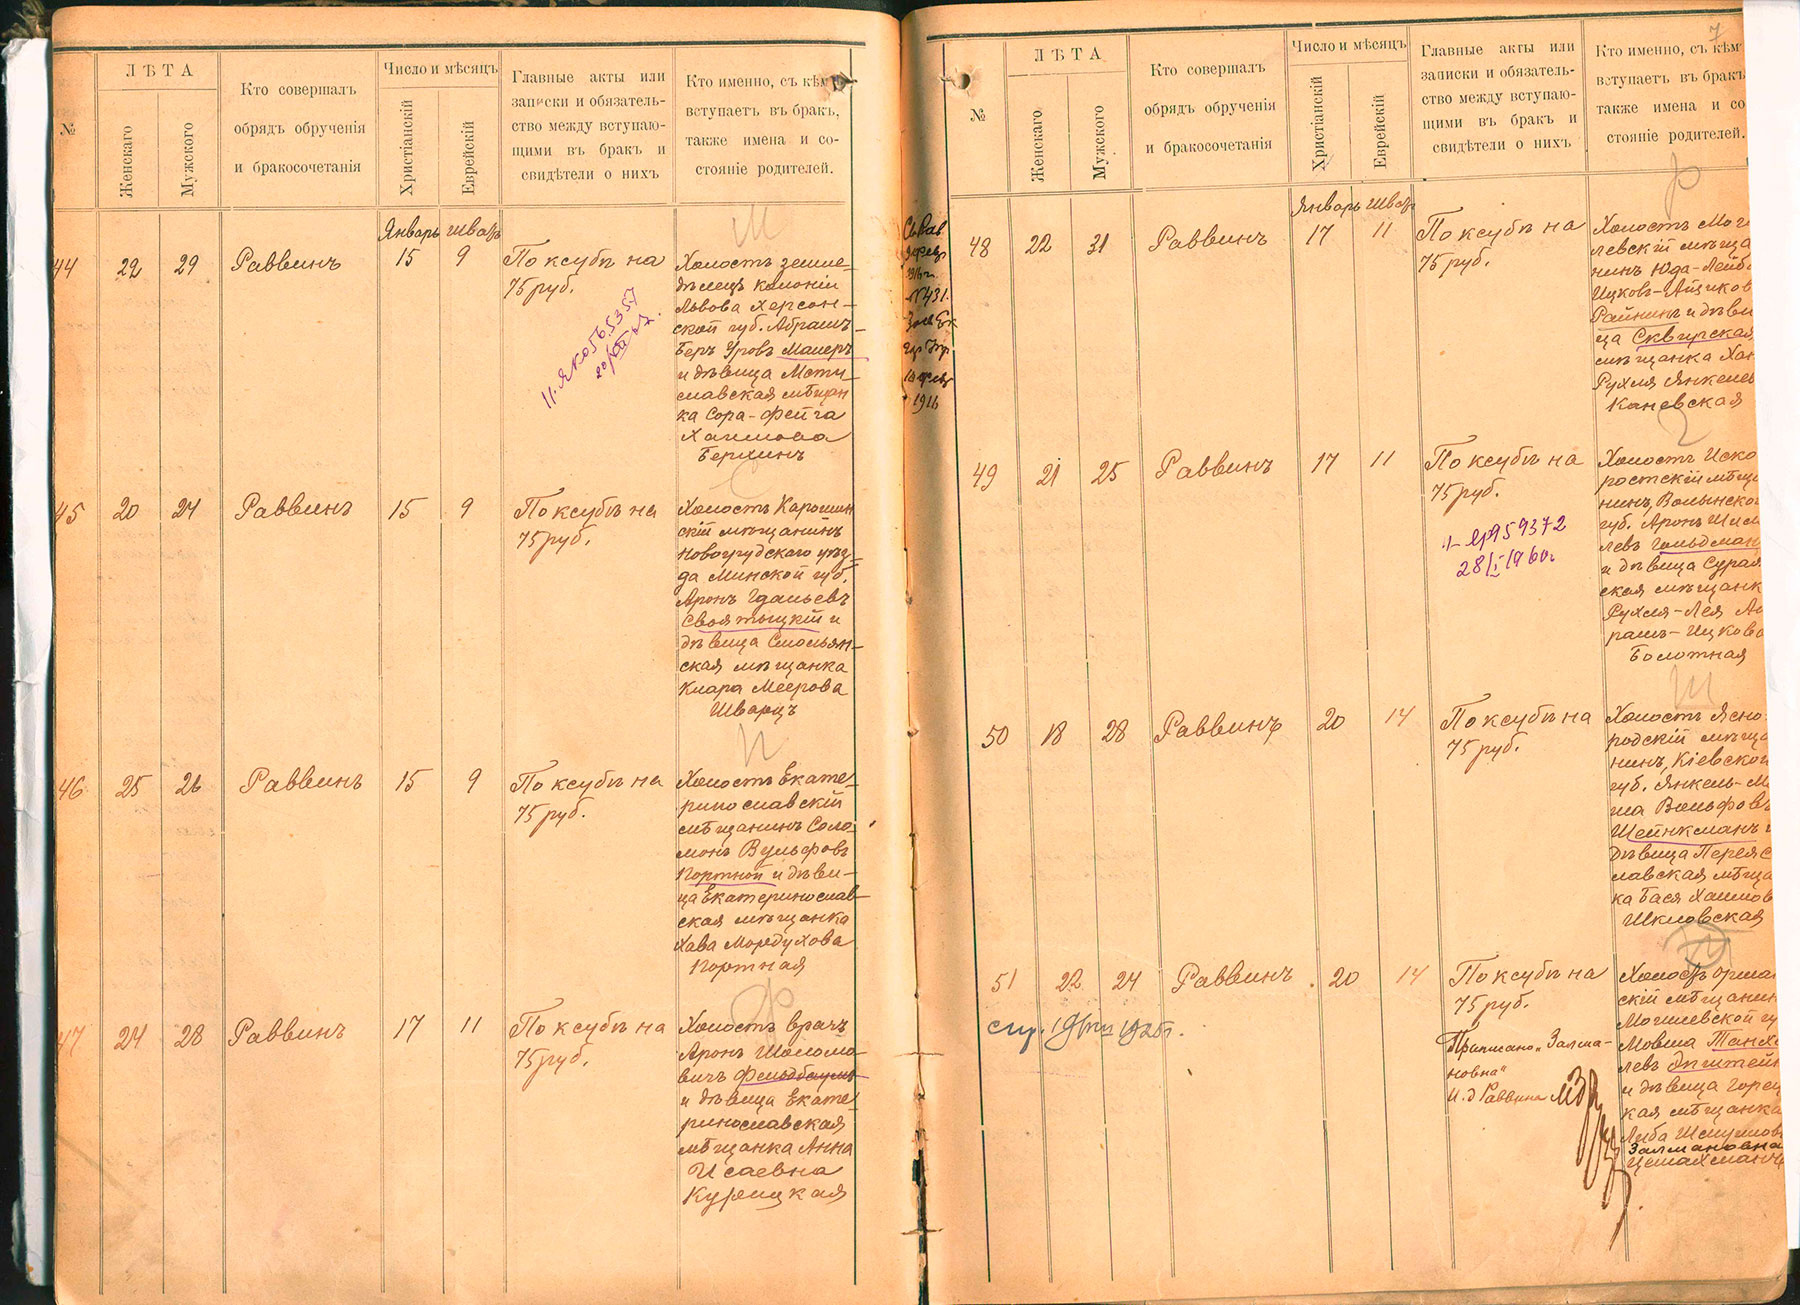 №
ЛѢТА
Женскаго
Мужского
Кто совершалъ
обрядъ обрученія
и бракосочетанія
Число и мѣсяцъ
Христіанскій
Еврейскій
Главные акты или
записки и обязатель-
ство между вступаю-
щими въ бракъ и
свидѣтели о нихъ
Кто именно, съ кѣмъ
вступаетъ въ бракъ,
также имена и со-
стояніе родителей.
Январь Шватъ
44 22 29 Раввинъ 15 9
По ксубѣ на
75 руб.
20/XII
Холостъ земле-
дѣлецъ колоніи
Львова Херсон-
ской губ. Абрамъ-
Беръ Уровъ Маперъ
и дѣвица Мсти-
славская мѣщан
ка Сора-Фейга
Хаимова
Берлинъ
45 20 24 Раввинъ 15 9
По ксубѣ на
75 руб.
Холостъ Карошин
скій мѣщанинъ
Новогрудскаго уѣз-
да Минской губ.
Аронъ Гдальевъ
Своятыцкій и
дѣвица Смольян-
ская мѣщанка
Клара Меерова
Шварцъ
46 25 26 Раввинъ 15 9
По ксубѣ на
75 руб.
Холостъ Екате-
ринославскій
мѣщанинъ Соло-
монъ Вульфовъ
Портной и дѣви-
ца Екатеринослав-
ская мѣщанка
Хава Мордухова
Портная
47 24 28 Раввинъ 17 11
По ксубѣ на
75 руб.
Холостъ врачъ
Аронъ Шоломо-
вичъ Фельдбаумъ
и дѣвица Екате-
ринославская
мѣщанка Анна
Исаевна
Курицкая
№431.
1916
7
№
ЛѢТА
Женскаго
Мужского
Кто совершалъ
обрядъ обрученія
и бракосочетанія
Число и мѣсяцъ
Христіанскій
Еврейскій
Главные акты или
записки и обязатель-
ство между вступаю-
щими въ бракъ и
свидѣтели о нихъ
Кто именно, съ кѣмъ
вступаетъ въ бракъ
также имена и со
стояніе родителей.
Январь Шватъ
48 22 31 Раввинъ 17 11
По ксубѣ на
75 руб.
Холостъ Моги
левскій мѣща
нинъ Юда-Лейба
Ицковъ-Айзиков
Райнинъ и дѣви
ца Сквирская
мѣщанка Хан
Рухля Янкелев
Каневская
49 21 25 Раввинъ 17 11
По ксубѣ на
75 руб.
959372
28/I 1960г
Холостъ Иско
ростскій мѣща
нинъ, Волынской
губ. Аронъ Шмі
левъ Гольдман
и дѣвица Сураж
ская мѣщанк
Рухля-Лея Аб
рамъ-Ицкова
Болотная
50 18 28 Раввинъ 20 14
По ксубѣ на
75 руб.
Холостъ Ясно-
родскій мѣща
нинъ, Кіевской
губ. Янкель-М
ша Вольфовъ
Шейнкманъ и
дѣвица Переяс
лавская мѣща
ка Бася Хаимов
Шкловская
51 22 24 Раввинъ 20 14
По ксубѣ на
75 руб.
Приписано „Залма-
новна"
И. д Раввина
Холостъ Орша
скій мѣщанин
Могилевской гу
Мовша Танхе
левъ Эпштейн
и дѣвица Горец
кая мѣщанка
Люба Шмуилов
Залмановна
Цемахманъ